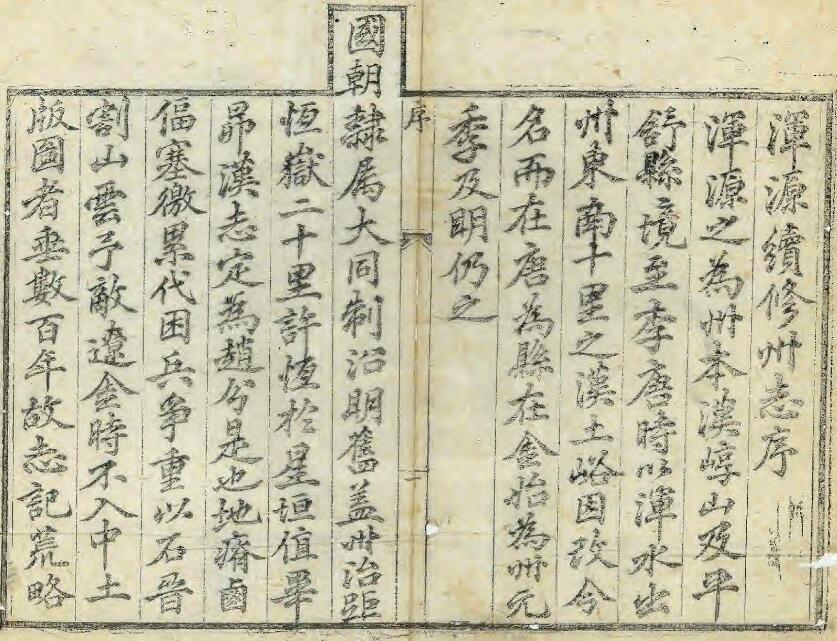 渾源續修州志序
渾源之為州本漢崞山及平
舒縣境至李唐時以渾水出
州東南十里之漢土峪因改今
名而在唐為縣在金始為州元
季及明仍之
序
一
國朝隸属大同制沿明舊蓋州治距
恆嶽二十里許恆於星垣值畢
昴漢志定為趙分是也地瘠鹵
偪塞徼累代困兵爭重以石晉
割山雲予敵遼金時不入中土
版圖者垂數百年故志記荒略